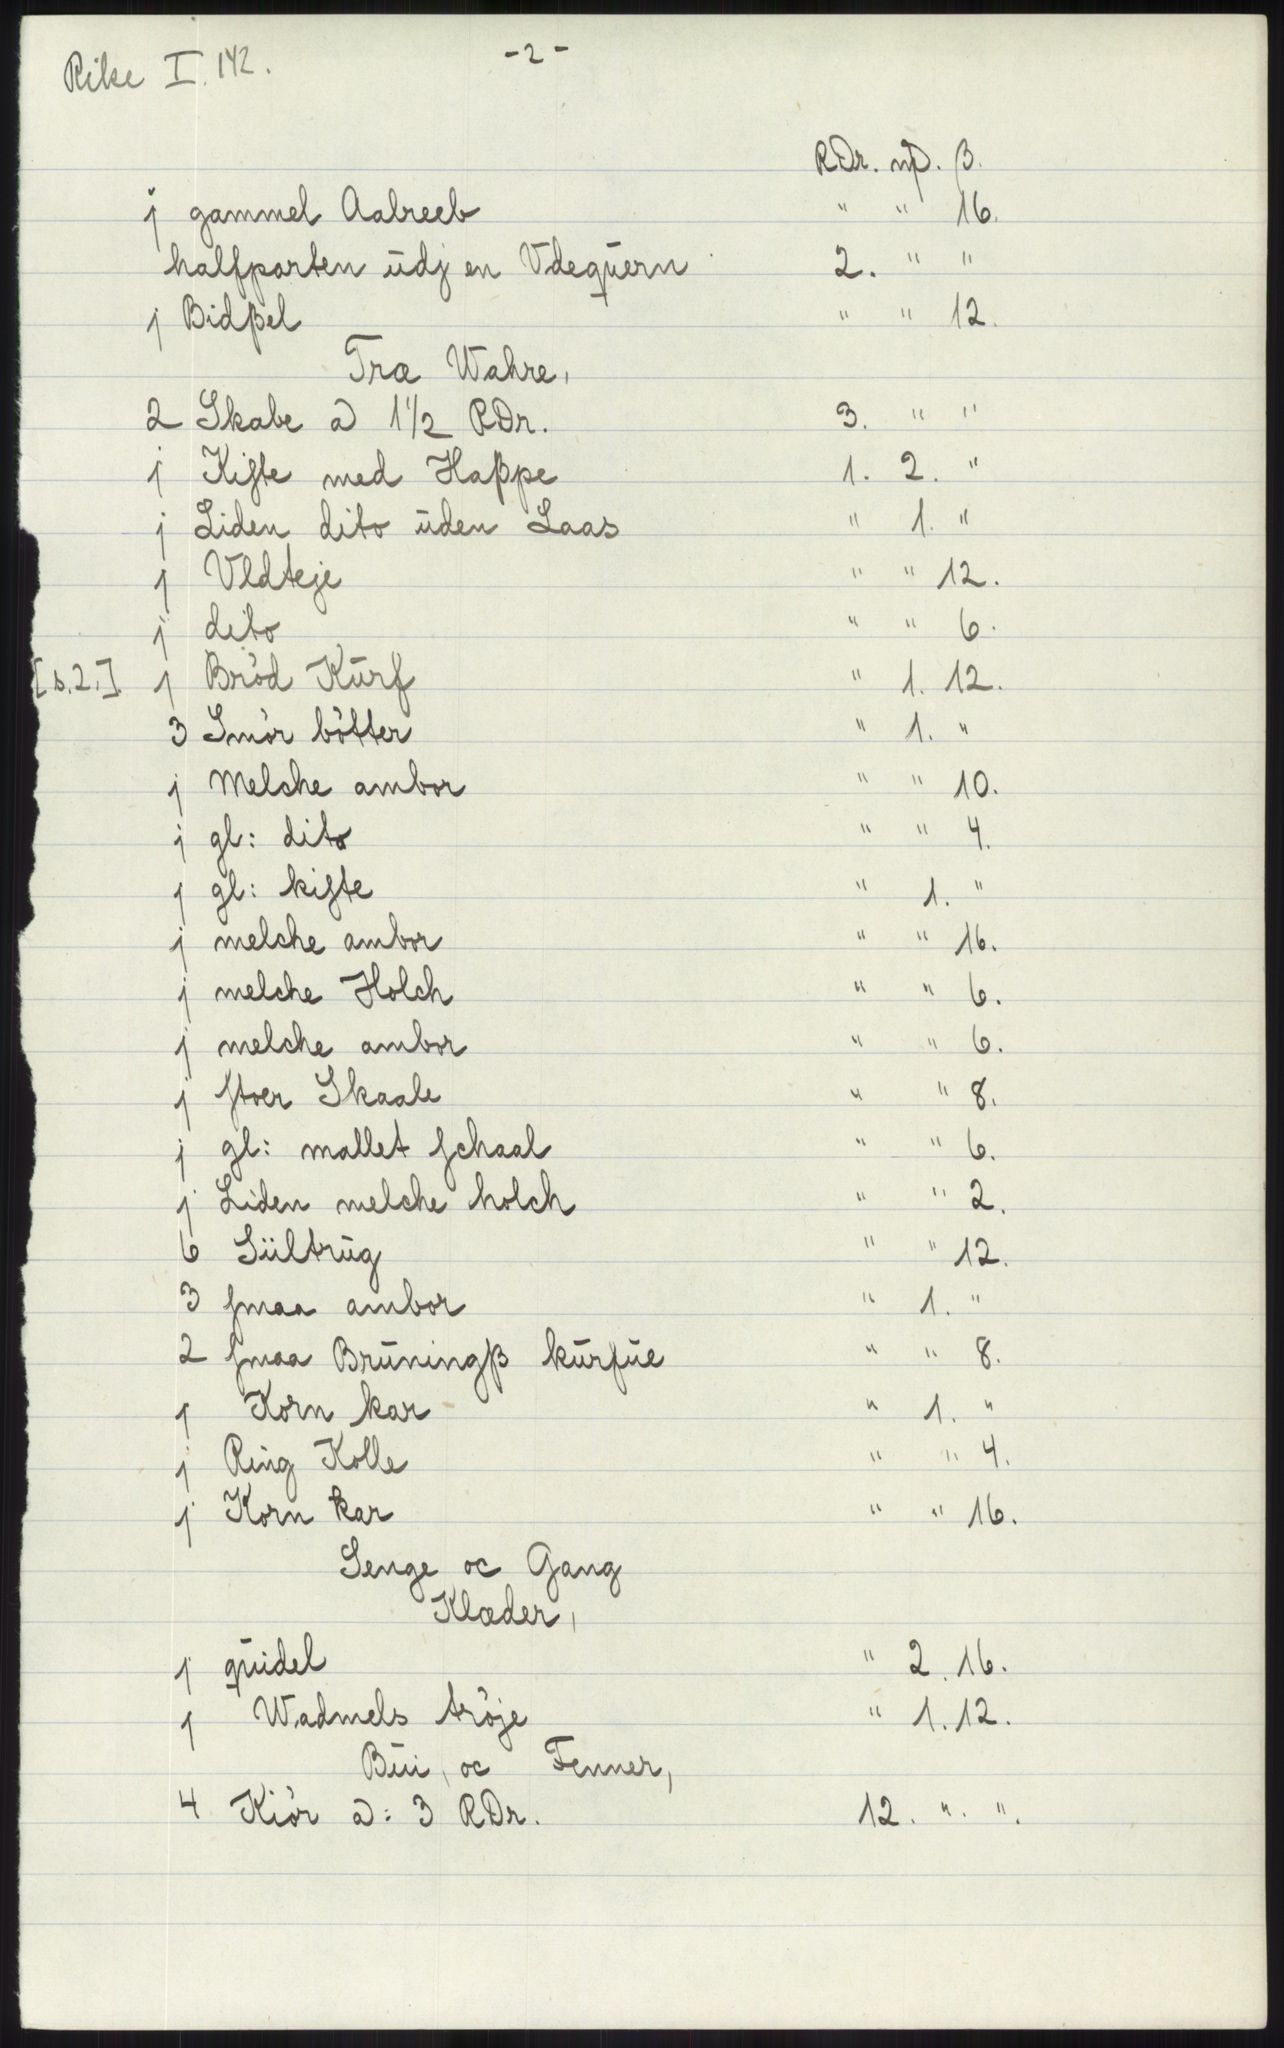 Rike I. 142.
- 2 -
RDr. mþ. β.
j gammel Aabreeb " " 16.
halfparten ūdj en Vdeqūern 2. " "
j Bidβel " " 12.
Træ Wahre,
2 Skabe a 1 1/2 RDr. 3. " "
j Kiste med Haβpe 1. 2. "
j Liden dito ūden Laas " 1. "
j Vldteje " " 12.
j dito " " 6.
[s.2.] j Bröd Kūrf " 1. 12.
3 Smör bötter " 1. "
j Melche ambor " " 10.
j gl: dito " " 4.
j gl: kiste " 1. "
j melche ambor " " 16.
j melche Holch " " 6.
j melche ambor " " 6.
j stoer Skaale " " 8.
j gl: mallet schaal " " 6.
j Liden melche holch " " 2.
6 Sültrūg " " 12.
3 smaa ambor " 1. "
2 smaa Brūningβ kūrfūe " " 8.
j Korn kar " 1. "
j Ring Kolle " " 4.
j Korn kar " " 16.
Senge oc Gang
Klæder,
j qūidel " 2. 16.
j Wadmels tröje " 1. 12.
Būi, oc Fenner,
4 Kiör a: 3 RDr. 12. ". ".